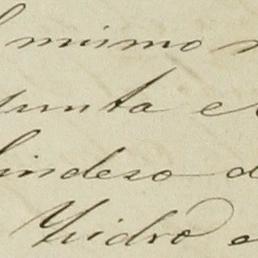 l mismo
junta e
lindero d
Ysidro e